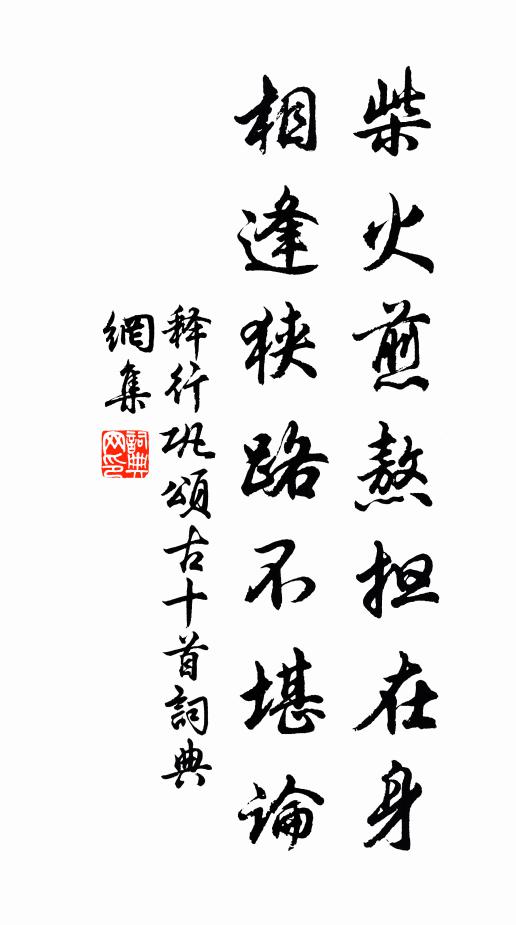 柴火煎熬担在身
相逢狭路不堪论
释行巩颂古十首詞典
網集
詞典网印